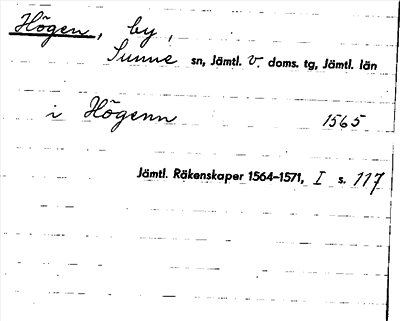 Högen, by,
Sunne sn, Jämtl. V. doms. tg, Jämtl. län
i Högenn 1565
Jämtl. Räkenskaper 1564–1571, I s. 117